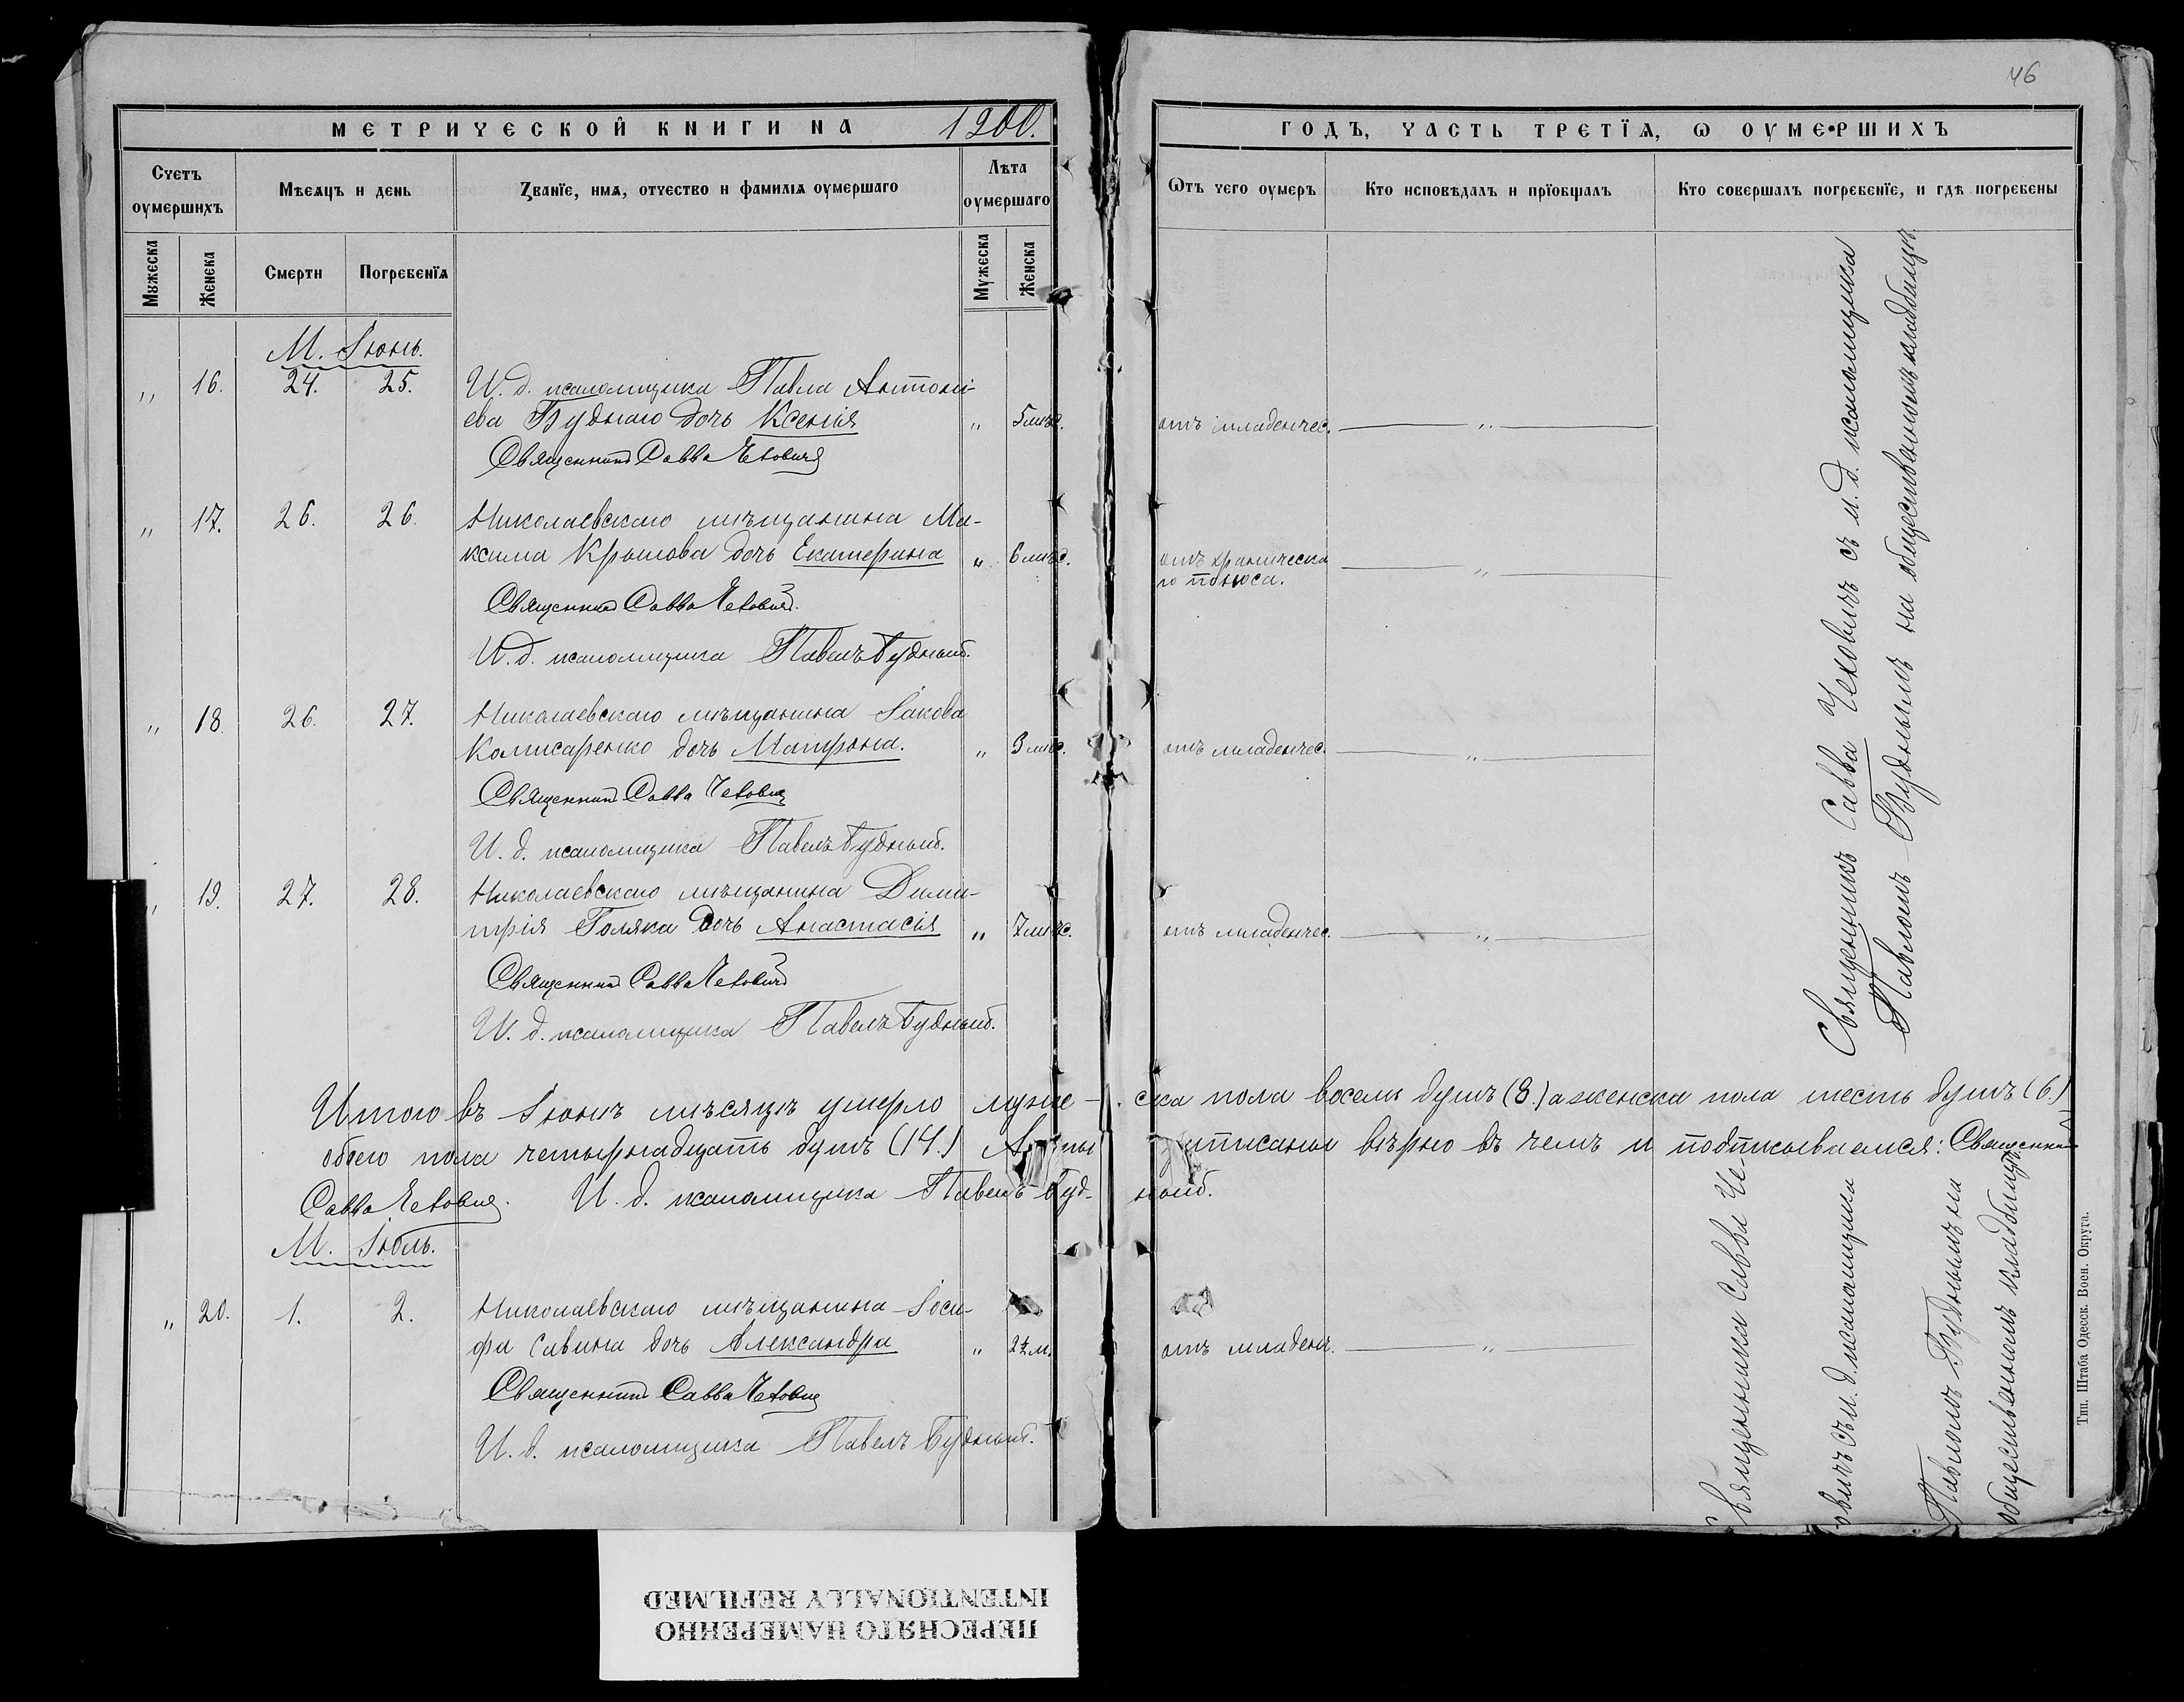 46
МЕТРИЧЕСКОЙ КНИГИ НА 1900.
ГОДЪ, ЧАСТЬ ТРЕТЇѦ, Ѡ ОУМЕРШИХЪ
Счетъ оумершихъ
Мѣсяцъ и день
Званїе, имѧ, отчество и фамилїѧ оумершаго
Лѣта оумершаго
Ѿтъ чего оумеръ
Кто исповѣдалъ и прїобщалъ
Кто совершалъ погребенїе, и гдѣ погребены
Мужеска
Женска
Смерти
Погребенїѧ
Мужеска
Женска
М. Іюнь.
„ 16. 24. 25. И. д. псаломщика Павла Антоні-
ева Буднаго дочь Ксенія „ 5 мѣс. отъ младенчес. „
Священникъ Савва Чеховичъ
„ 17. 26. 26. Николаевскаго мѣщанина Ма-
ксима Крымова дочь Екатерина „ 6 мѣс. отъ хроническа
го поноса. „
Священникъ Савва Чеховичъ.
И. д. псаломщика Павелъ Будный.
„ 18 26. 27. Николаевскаго мѣщанина Іакова
Комисаренко дочь Матрона. „ 9 мѣс. отъ младенчес. „
Священникъ Савва Чеховичъ
И. д. псаломщика Павелъ Будный.
„ 19. 27. 28. Николаевскаго мѣщанина Дими-
трія Голяка дочь Анастасія „ 7 мѣс. отъ младенчес. „
Священникъ Савва Чеховичъ
И. д. псаломщика Павелъ Будный.
Священникъ Савва Чеховичъ съ и. д. псаломщика
Павломъ Буднымъ на общественномъ кладбищѣ.
Итого въ Іюнѣ мѣсяцѣ умерло муже- ска пола восемь душъ (8.) а женска пола шесть душъ (6.)
обоего пола четырнадцать душъ (14.) записаны вѣрно въ чемъ и подписываемся: Священникъ
Савва Чеховичъ. И. д. псаломщика Павелъ Буд- ный.
М. Іюль.
„ 20. 1. 2. Николаевскаго мѣщанина Іоси-
фа Савина дочь Александра „ отъ младенч. „
Священникъ Савва Чеховичъ
И. д. псаломщика Павелъ Будный.
Священника Савва Че-
ховичъ съ и. д. псаломщика
Павломъ Буднымъ на
общественномъ кладбищѣ
Тип. Штаба Одесск. Воен. Округа.
ПЕРЕСНЯТО НАМЕРЕННО
INTENTIONALLY REFILMED